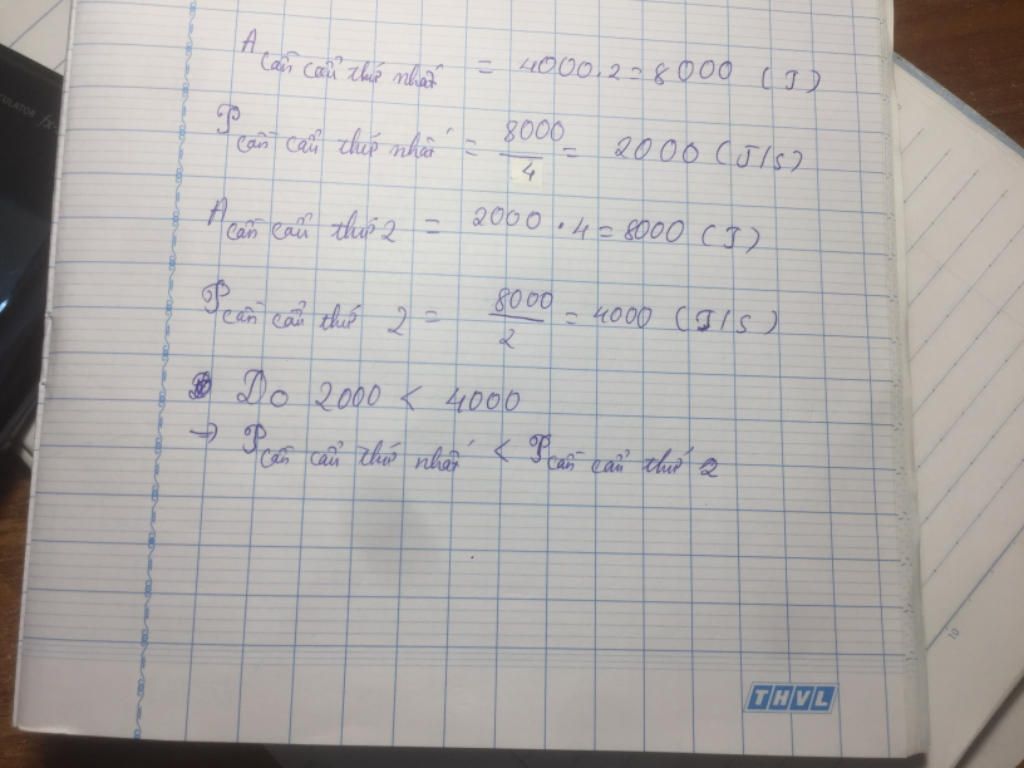 A cần cẩu thứ nhất = 4000.2 = 8000 (J)
P cần cẩu thứ nhất = 8000/4 = 2000 (J/s)
A cần cẩu thứ 2 = 2000 . 4 = 8000 (J)
P cần cẩu thứ 2 = 8000/2 = 4000 (J/s)
Do 2000 < 4000
→ P cần cẩu thứ nhất < P cần cẩu thứ 2
THVL
10